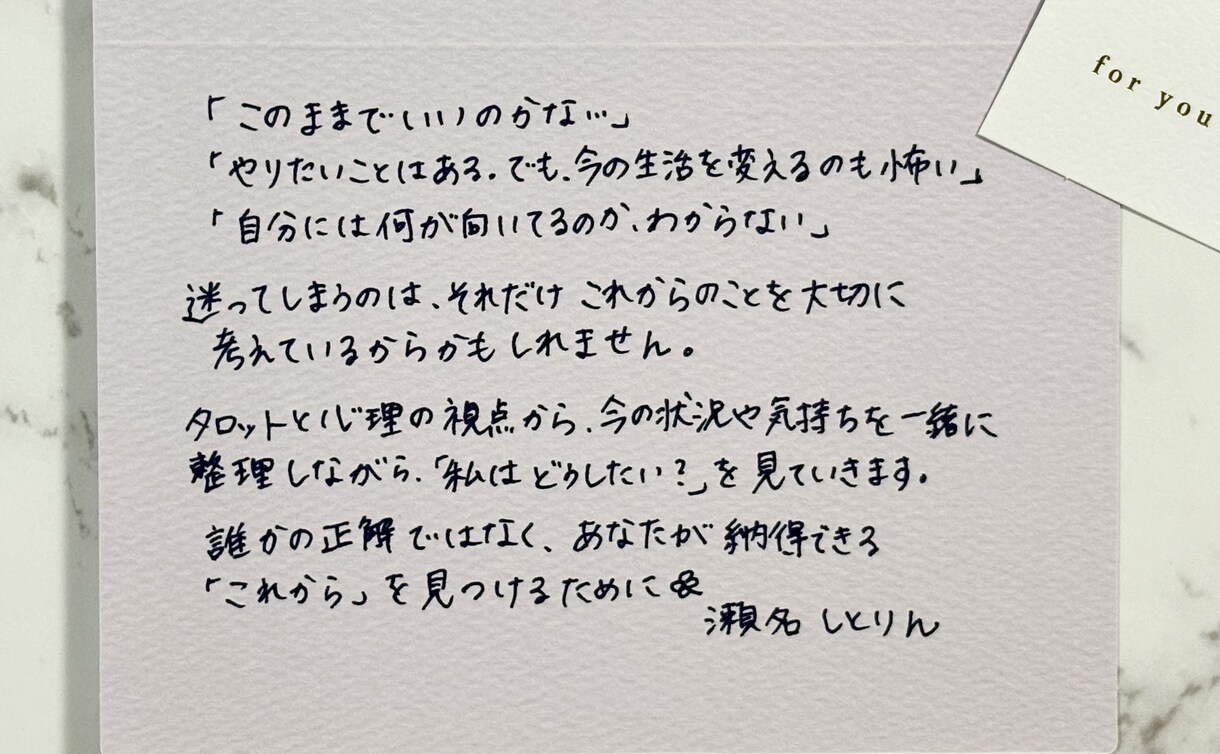 for you
「このままでいいのかな…」
「やりたいことはある。でも、今の生活を変えるのも怖い」
「自分には何が向いてるのか、わからない」
迷ってしまうのは、それだけ これからのことを大切に
考えているからかもしれません。
タロットと心理の視点から、今の状況や気持ちを一緒に
整理しながら、「私は どうしたい？」を見ていきます。
誰かの正解ではなく、あなたが納得できる
「これから」を見つけるために
瀬名 しとりん